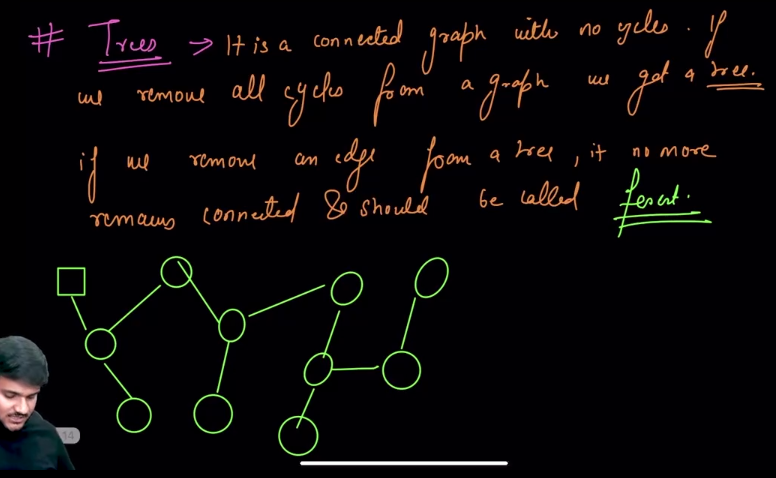 # Trees → It is a connected graph with no cycles. If
we remove all cycles from a graph we get a tree.
if we remove an edge from a tree, it no more
remains connected & should be called forest.
14